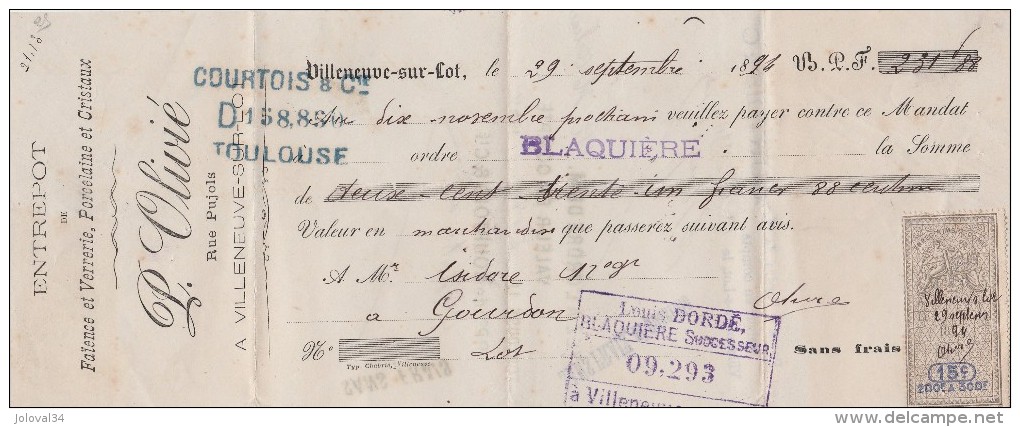 21.18
ENTREPOT
DE
Faïence et Verrerie, Porcelaine et Cristaux
P. Olivié
Rue Pujols
A VILLENEUVE-SUR-LOT
COURTOIS & Cie
D 158,850
TOULOUSE
Villeneuve-sur-Lot, le 29 septembre 1894 B.P.F. 231f 88
dix novembre prochain veuillez payer contre ce Mandat
ordre BLAQUIÈRE la Somme
de deux cent trente un francs 88 centimes
Valeur en marchandise que passerez suivant avis.
A Mr. Isidore
à Gourdon
Lot
No
Typ. Chabrié, Villeneuve
Louis DORDÉ,
BLAQUIÈRE SUCCESSEUR
09.293
à Villeneuve
Sans frais
Villeneuve s Lot
29 septem
94
Olivié
15c
200F A 300F
joloval34
www.delcampe.net